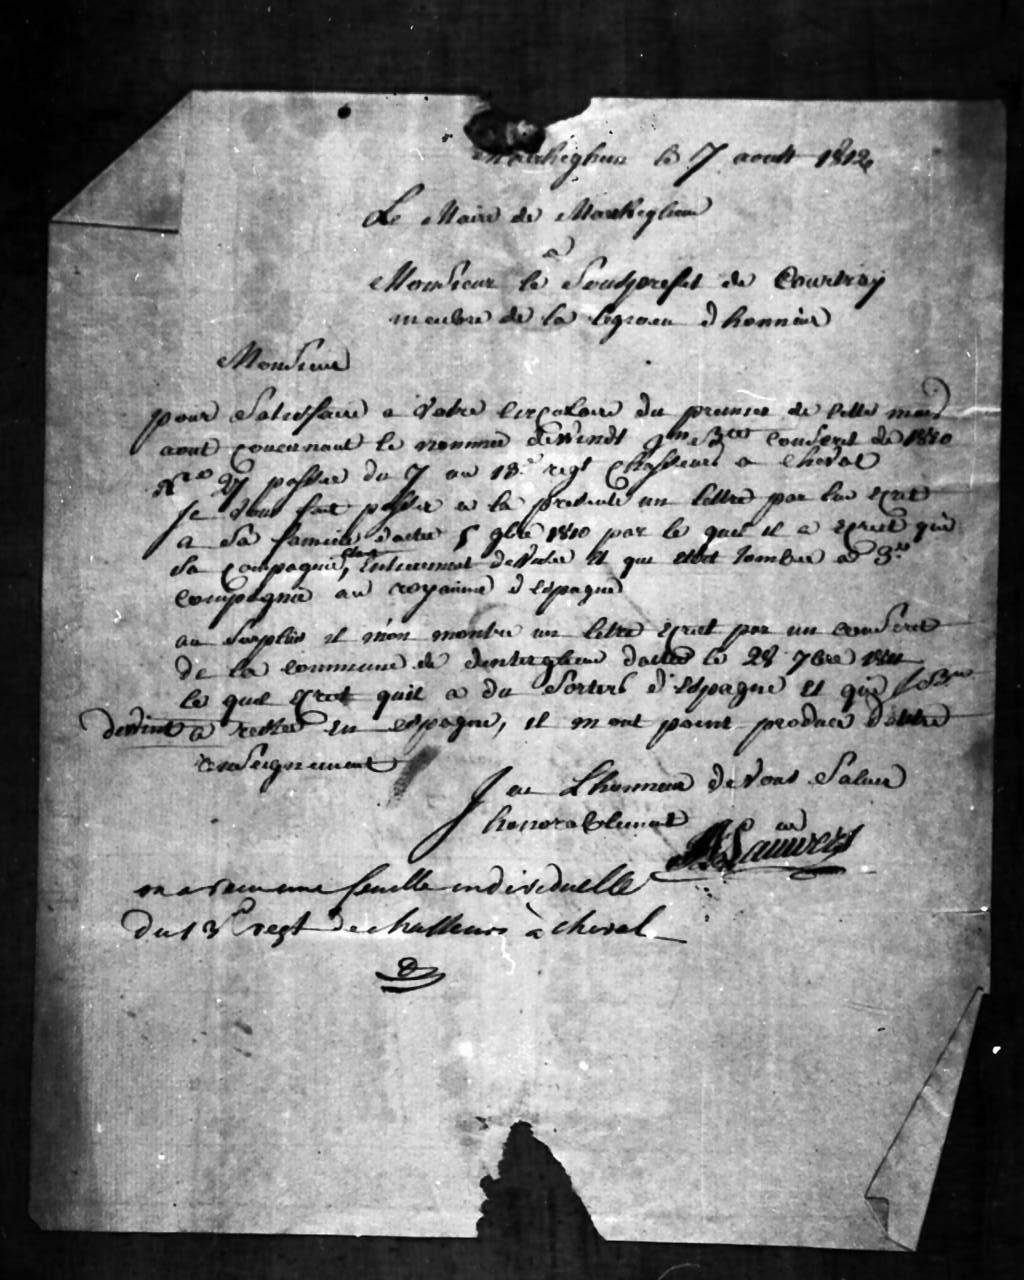 Markeghem le 7 aoutt 1812
Le Maire de Markeghem
a
Monsieur le Soudprefet de Courtray
membre de la legioen d honneur
Monsieur
pour Satisfaire a Votre Circulaire du premier de cette mois
aout concernant le nomme deWindt conscrit de 1810
N° 27 passer du 7 au 13.e regt Chasseurs a cheval
je vous fait passer a la presente un lettre par lui ecrit
a sa famille datee 5 9bre 1810 par le quel il a ecrit que
sa compagnie, etant entierement et que etoit tomber a 3.e
compagnie au royaume d Espagne
au surplus il m'on montre un letre ecrit par un conscrit
de la commune de denterghem datee le 28 7bre 1811
le quel ecrit quil a du Sorters d'Espagne et que
dewint a rester en espagne, il m ont point produce d'autre
renseignement
J ai L'honneur de Vous Saluer
honorablement
Sauwers
on a recu une feuille individuelle
du 13e regt de chasseurs à cheval